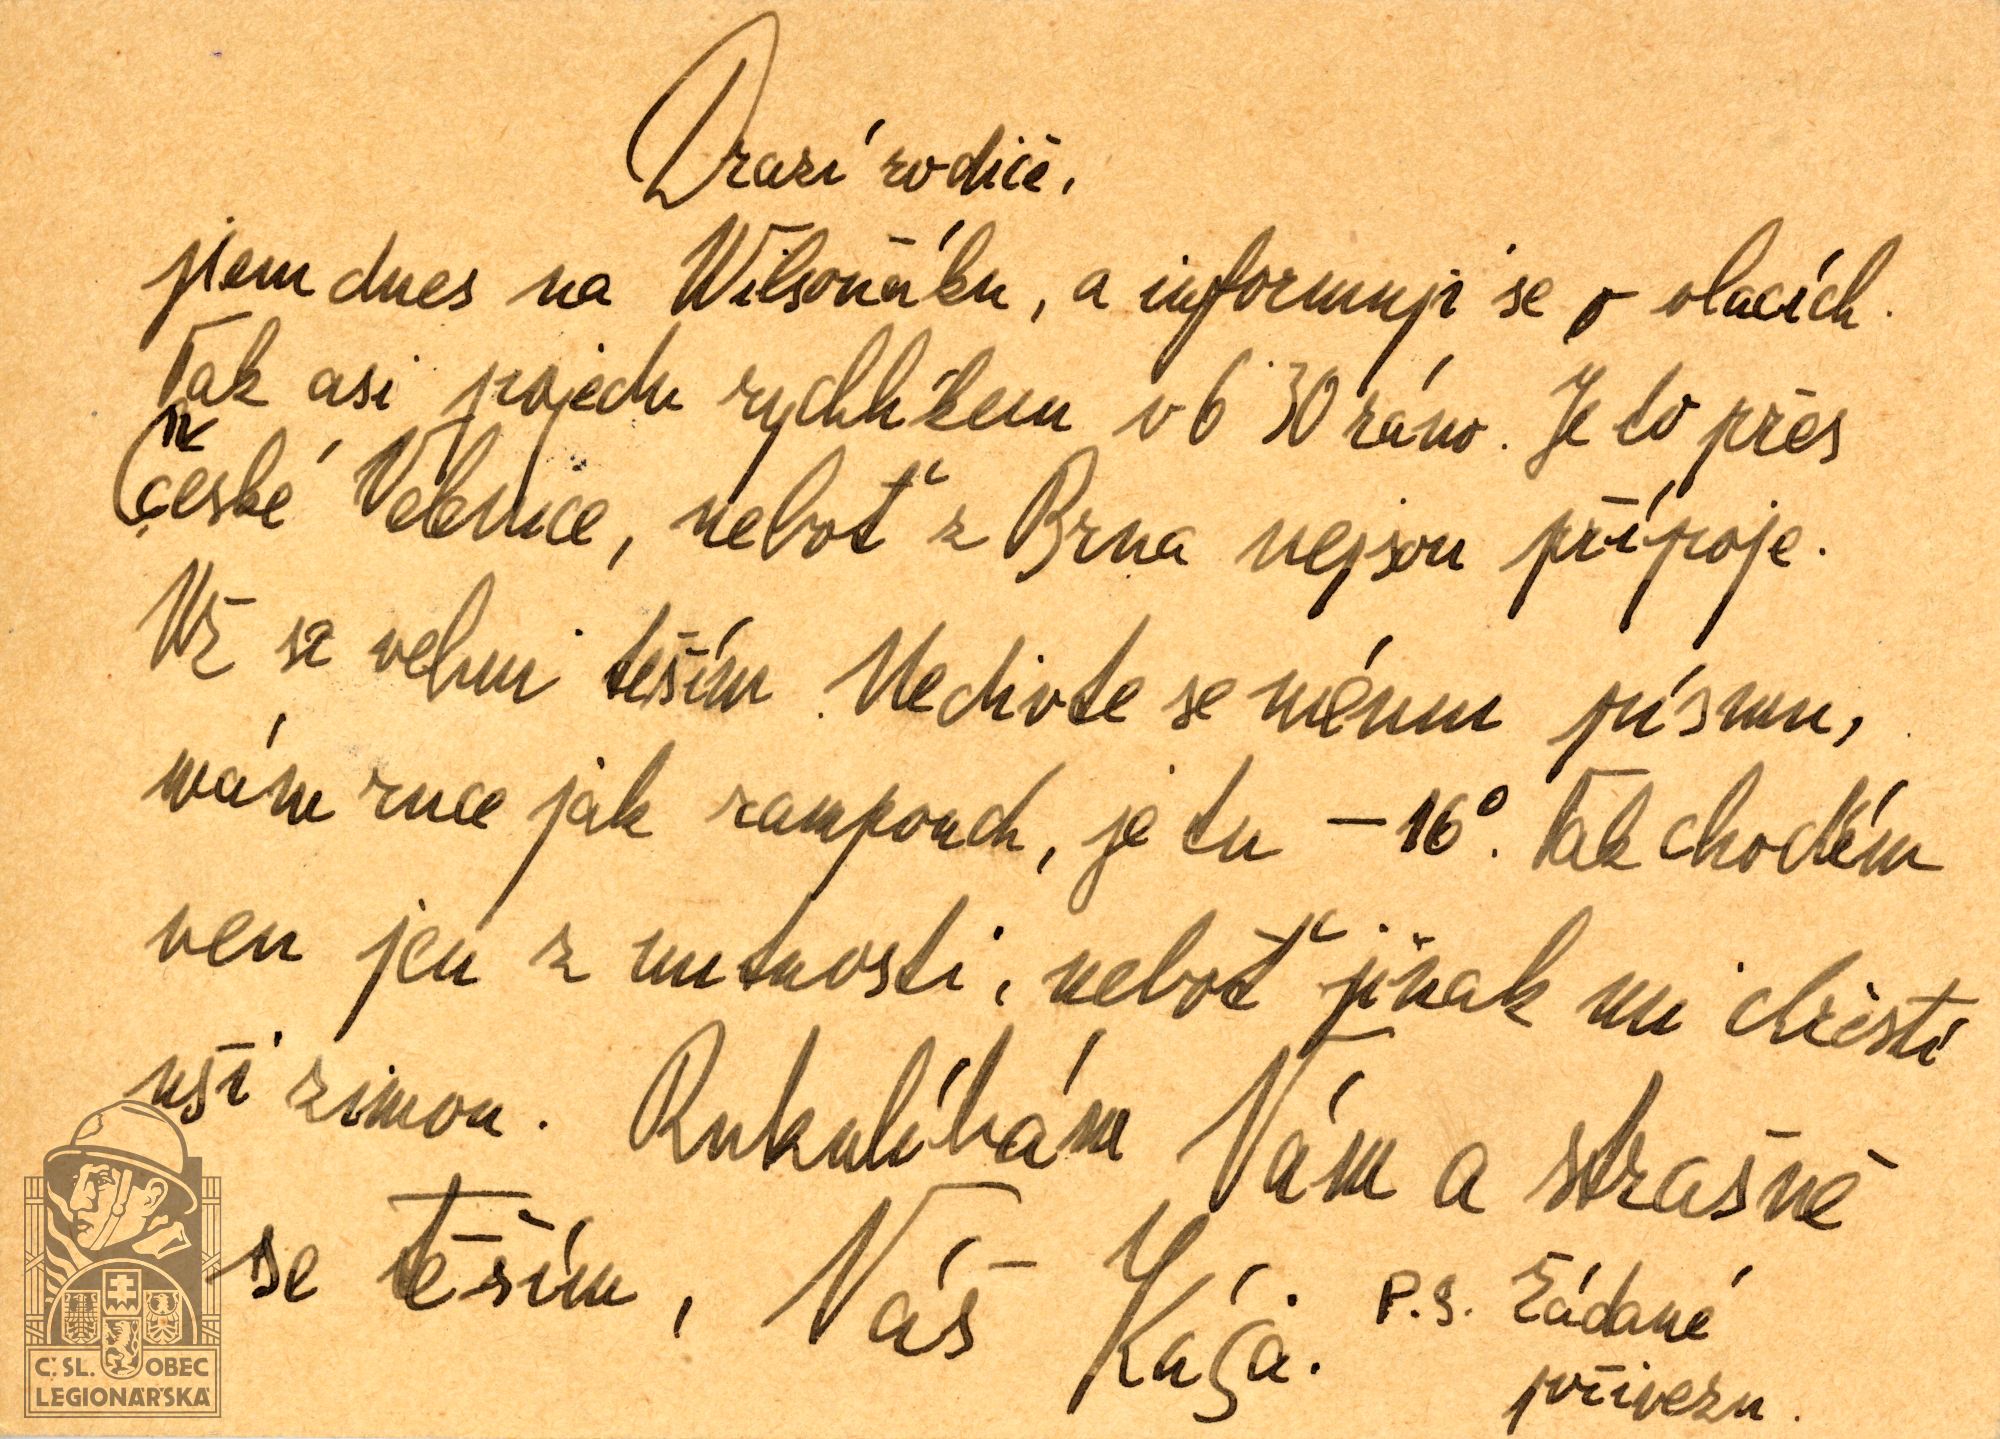 Drazí rodiče,
jsem dnes na Wilsoňáku, a informuji se o vlacích.
Tak asi pojedu rychlíkem v 6 30 ráno. Je to přes
České Velenice, neboť z Brna nejsou přípoje.
Už se velmi těším. Nedivte se mému písmu,
mám ruce jak rampouch, je tu -16°. Tak chodím
ven jen z nutnosti, neboť jinak mi chřestí
uši zimou. Rukulíbám Vám a strašně
se těším, Váš Kája.
P.S. Žádané
přivezu.
Č. SL. OBEC
LEGIONÁŘSKÁ